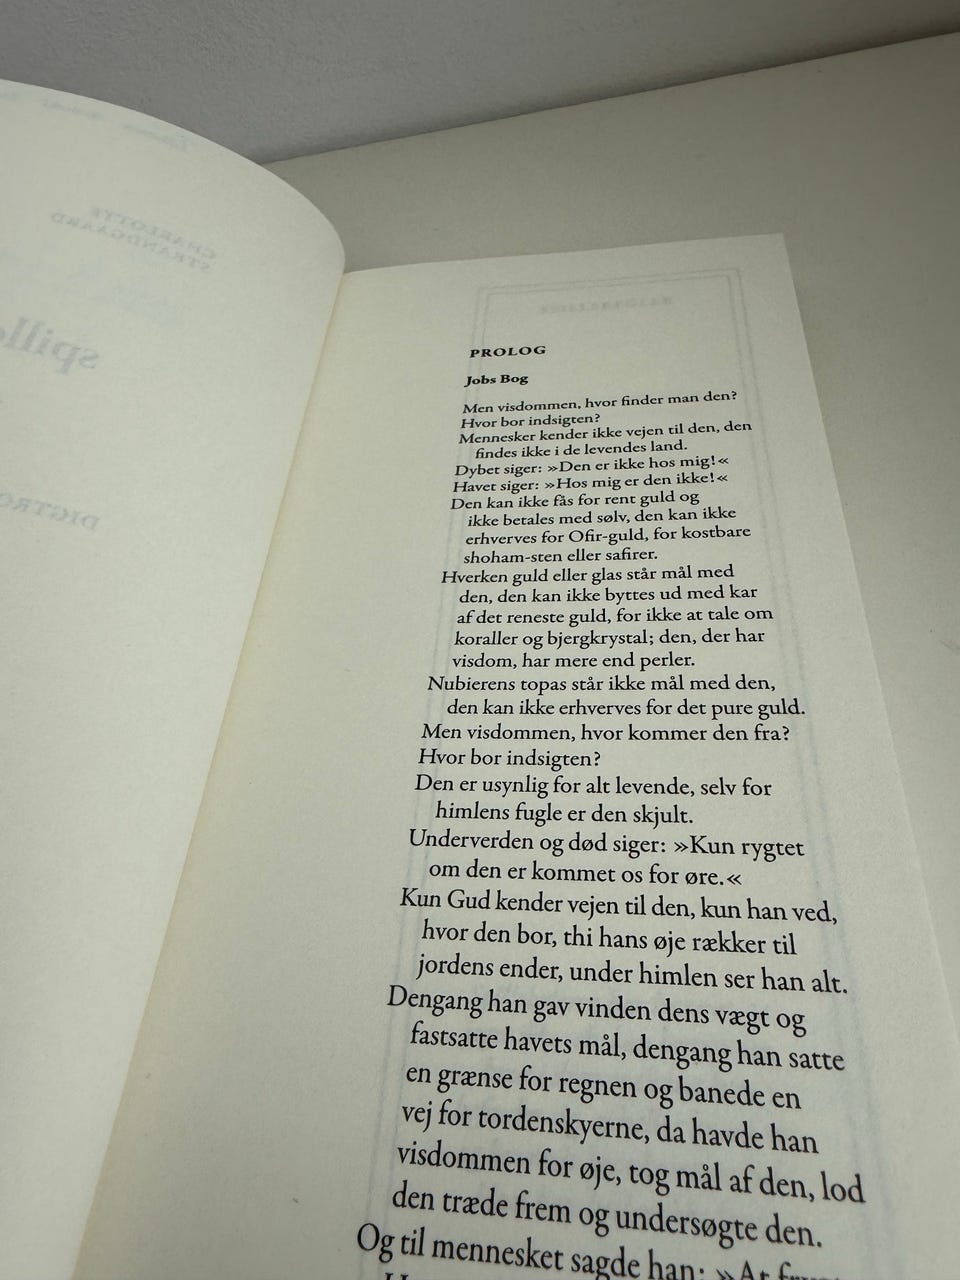 CHARLOTTE
STRANDGAARD
PROLOG
Jobs Bog
Men visdommen, hvor finder man den?
Hvor bor indsigten?
Mennesker kender ikke vejen til den, den
findes ikke i de levendes land.
Dybet siger: »Den er ikke hos mig!«
Havet siger: »Hos mig er den ikke!«
Den kan ikke fås for rent guld og
ikke betales med sølv, den kan ikke
erhverves for Ofir-guld, for kostbare
shoham-sten eller safirer.
Hverken guld eller glas står mål med
den, den kan ikke byttes ud med kar
af det reneste guld, for ikke at tale om
koraller og bjergkrystal; den, der har
visdom, har mere end perler.
Nubierens topas står ikke mål med den,
den kan ikke erhverves for det pure guld.
Men visdommen, hvor kommer den fra?
Hvor bor indsigten?
Den er usynlig for alt levende, selv for
himlens fugle er den skjult.
Underverden og død siger: »Kun rygtet
om den er kommet os for øre.«
Kun Gud kender vejen til den, kun han ved,
hvor den bor, thi hans øje rækker til
jordens ender, under himlen ser han alt.
Dengang han gav vinden dens vægt og
fastsatte havets mål, dengang han satte
en grænse for regnen og banede en
vej for tordenskyerne, da havde han
visdommen for øje, tog mål af den, lod
den træde frem og undersøgte den.
Og til mennesket sagde han: »At